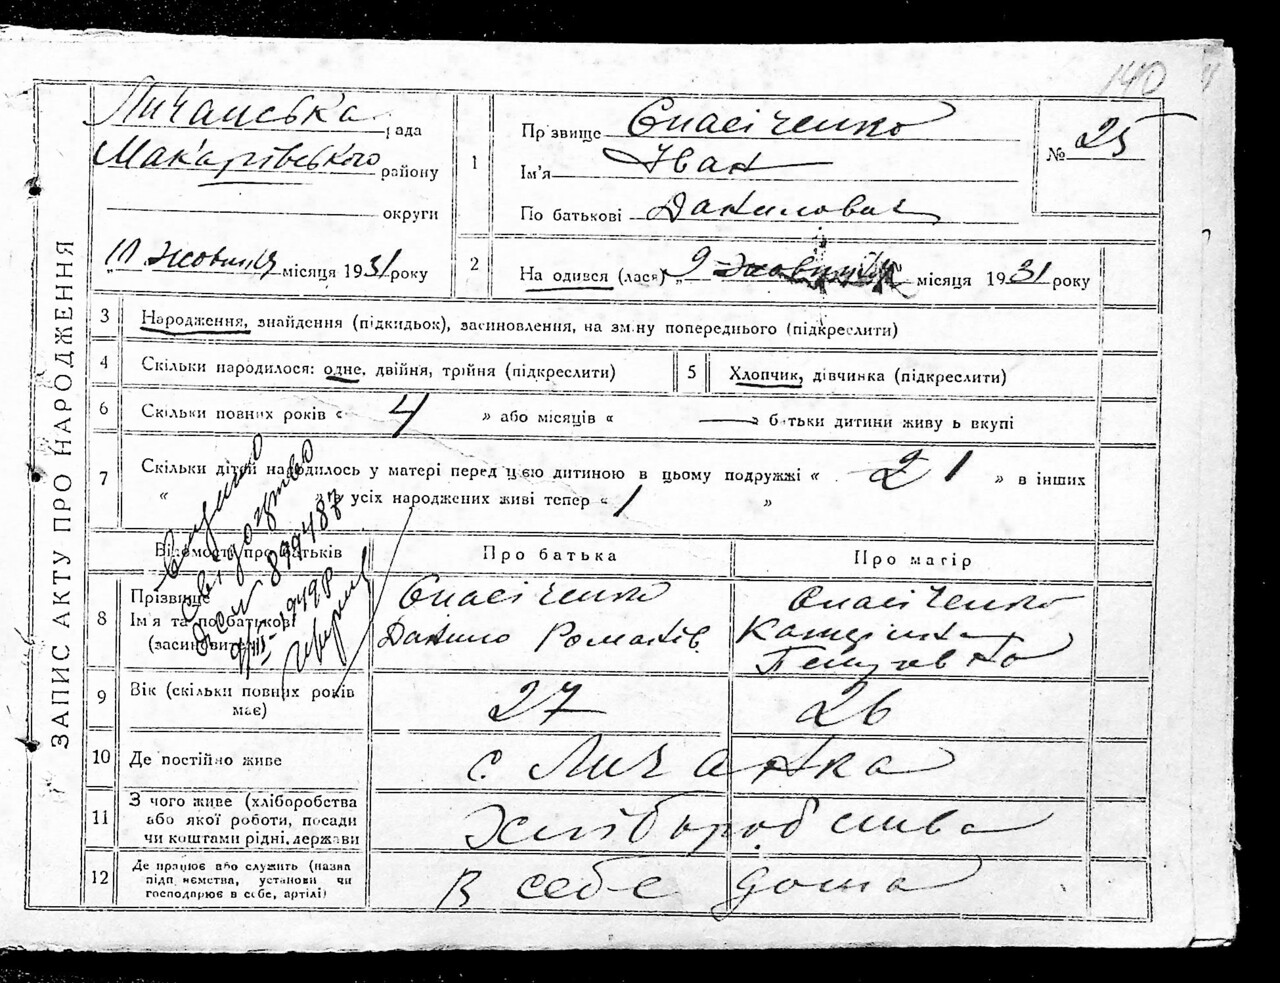 140
ЗАПИС АКТУ ПРО НАРОДЖЕННЯ
Личанська рада
Макарівського району
округи
"11 жовтня місяця 1931 року
1
Пр звище Спасіченко
Ім'я Іван
По батькові Данилович
№ 25
2
На одився (лася) "9 жовтня місяця 1931 року
3 Народження, знайдення (підкидьок), засиновлення, на зм.ну попереднього (підкреслити)
4 Скільки народилося: одне, двійня, трійня (підкреслити)
5 Хлопчик, дівчинка (підкреслити)
6 Скільки повних років « 4 » або місяців « — » батьки дитини живу ь вкупі
7 Скільки дітей народилось у матері перед цією дитиною в цьому подружжі « 1 » в інших
« » в усіх народжених живі тепер « 1 »
Відомості про батьків
Про батька
Про матір
8 Прізвище
Ім'я та по батькові
(засиновителі)
Спасіченко
Данило Романів
Спасіченко
9 Вік (скільки повних років має)
27
26
10 Де постійно живе
с. Личанка
11 З чого живе (хліборобства
або якої роботи, посади
чи коштами рідні, держави
Хліборобства
12 Де працює або служить (назва
підп иємства, установи чи
господарює в себе, артілі)
В себе дома
Свидоцтво
879487
1949р